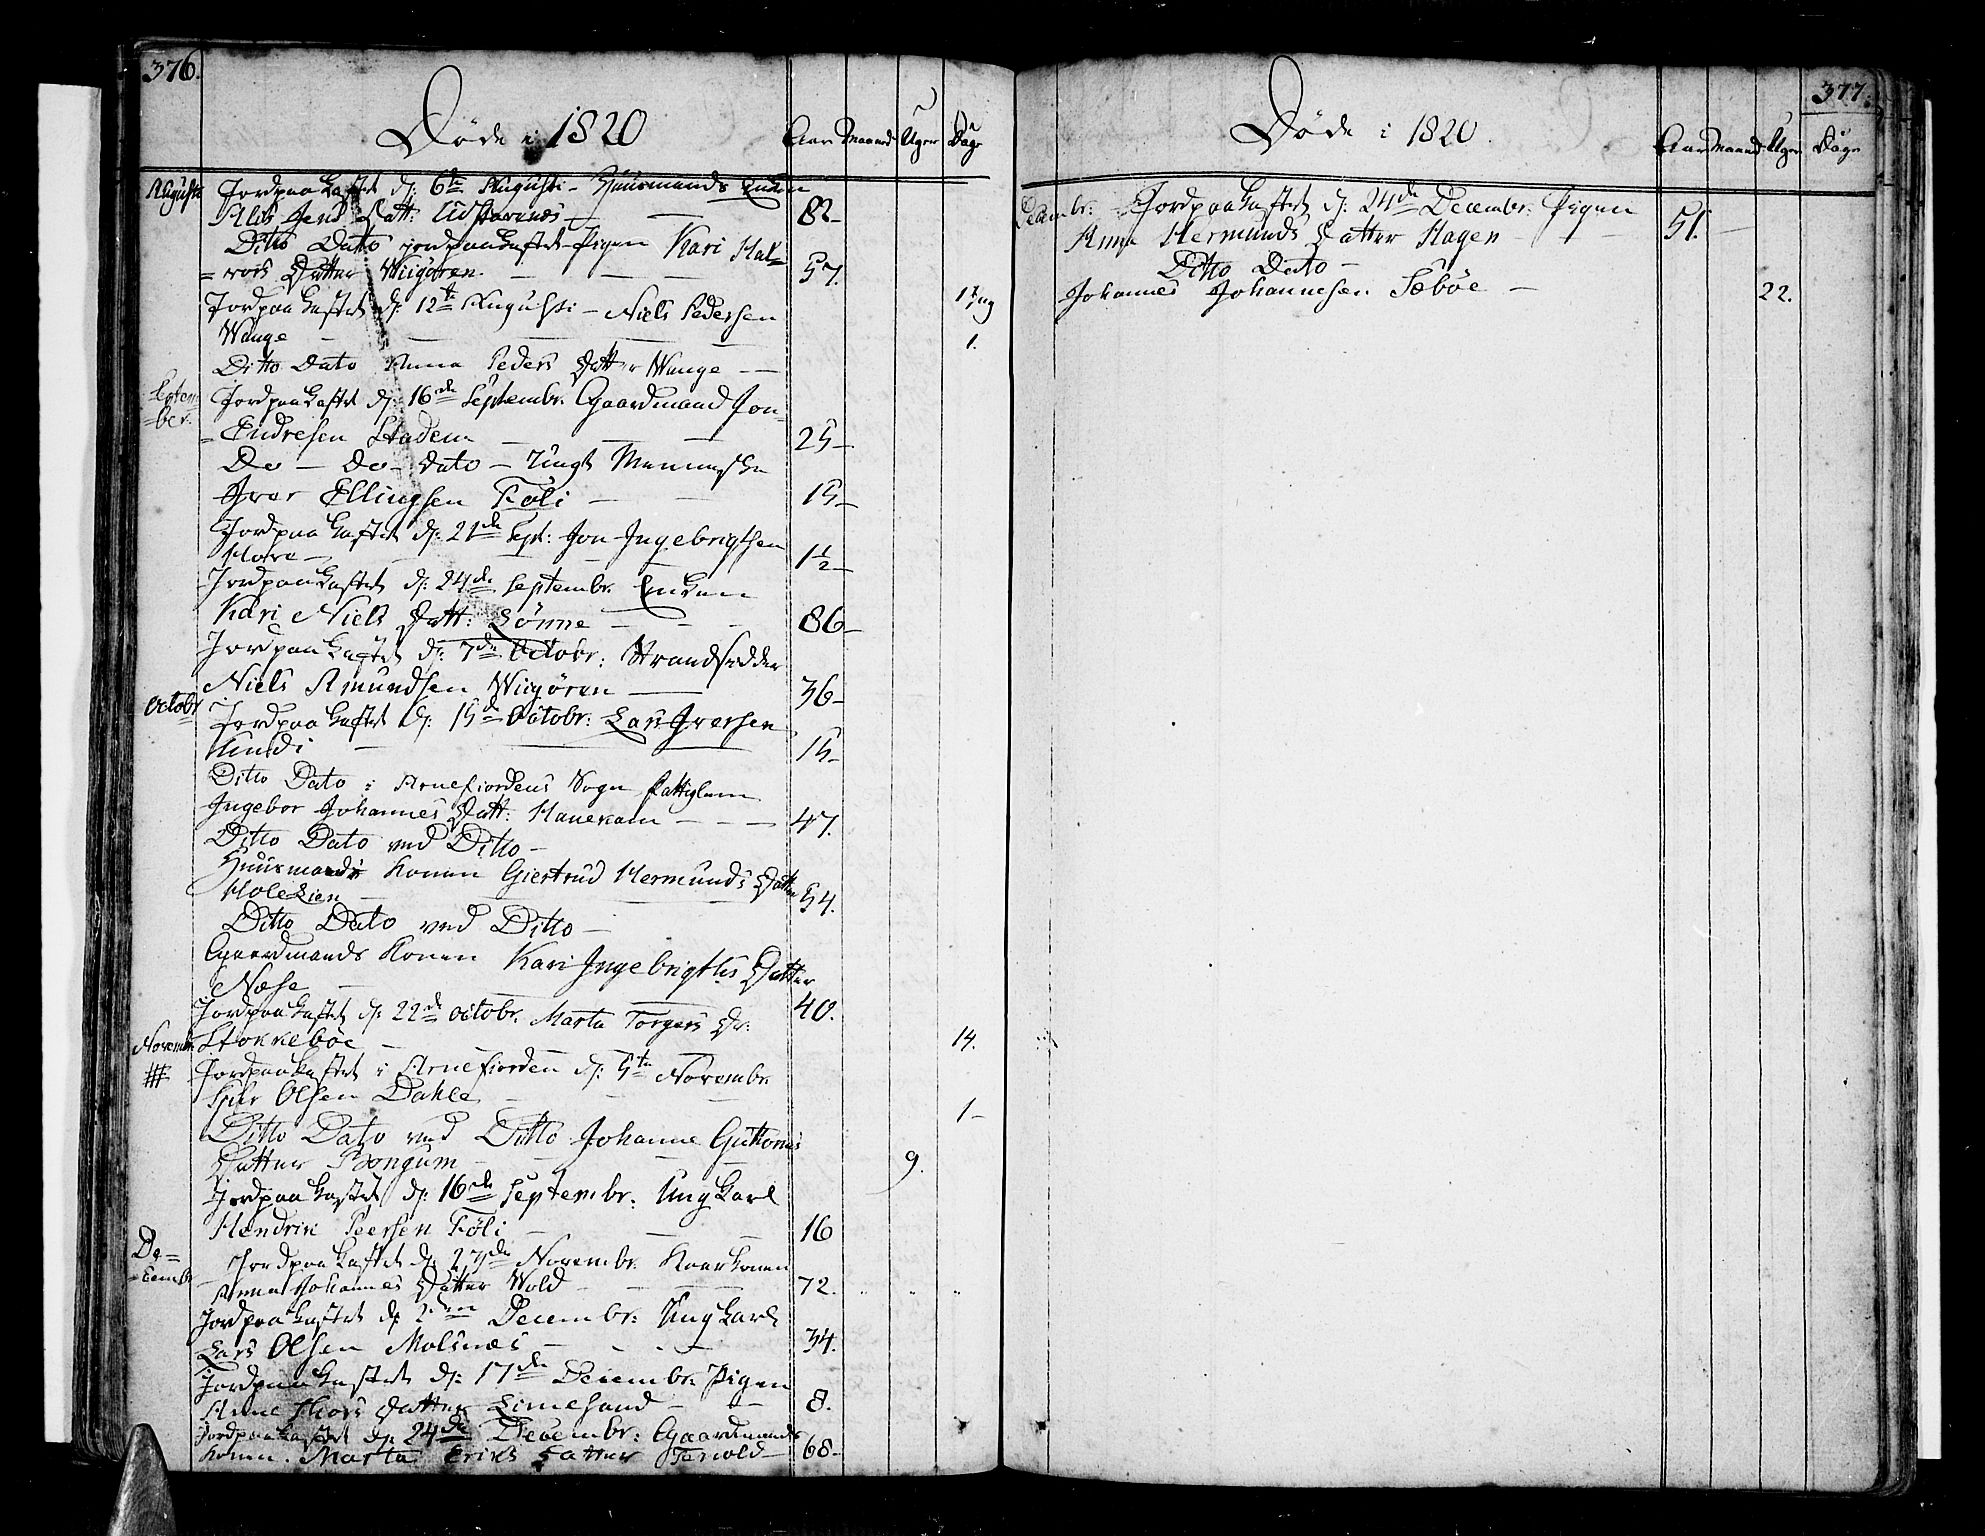 376.
Døde i 1820
Aar Maaned Uger Dage
Augusti Jordpaakastet d: 6te Augusti - Huusmands Enken
Datt: 82-
Ditto Dato jordpaakastet Pigen Kari Hal=
=vors Datter Wiigøren 57.
Jordpaakastet d: 12te Augusti - Niels Pedersen
Wange - 1 Dag
Ditto Dato Anna Peders Datter Wange - 1.
Septem
=ber.
Jordpaakastet d: 16de Septembr. Gaardmand Jon
=Endresen Stadem 25-
Do - Do - Dato - Ungt Menneske
Iver Ellingsen Føli - 15-
Jordpaakastet d: 21de Sept: Jon Ingebrigtsen
Hove - 1½-
Jordpaakastet d: 24de Septembr. Enken
Kari Niels Datt: Sønne - 86-
Jordpaakastet d: 7de Octobr: Strandsidder
Niels Amundsen Wiigøren - 36-
Octobr Jordpaakastet d: 15de Octobr: Lars Iversen
Undi - 15-
Ditto Dato i Arnefiordens Sogn Fattiglem
Ingebor Johannes Datt: Hanekam - 47.
Ditto Dato ved Ditto -
Huusmands Konen Giertrud Hermunds Datter
Holelien 54.
Ditto Dato ved Ditto -
Gaardmands Konen Kari Ingebrigts Datter
Næse - 40.
Jordpaakastet d: 22de Octobr. Marta Torgers Dr:
Novembr Stokkebøe - 14.
Jordpaakastet i Arnefiorden d: 5te Novembr.
Olsen Dahle - 1-
Ditto Dato ved Ditto Johanne Guttorms
Datter Bongum - 9.
Jordpaakastet d: 16de Septembr. Ung Karl
Hendrik Peersen Føli - 16
De=
=cembr
Jordpaakastet d: 27de Novembr. Kaarkonen
Anna Johannes Datter Wold - 72.
Jordpaakastet d: 2den Decembr: Ung Karl
Lars Olsen Molsnæs - 34.
Jordpaakastet d: 17de Decembr: Pigen
Anne Datter Linesand - 8.
Jordpaakastet d: 24de Decembr: Gaardmands
Konen. Marta Eriks Datter Tenold - 68-
377.
Døde i 1820.
Aar Maaned Uger Dage
Decembr: Jordpaakastet d: 24de Decembr: Pigen
Anna Hermunds Datter Hagen - 51.
Ditto Dato -
Johannes Johannesen Sæbøe - 22.